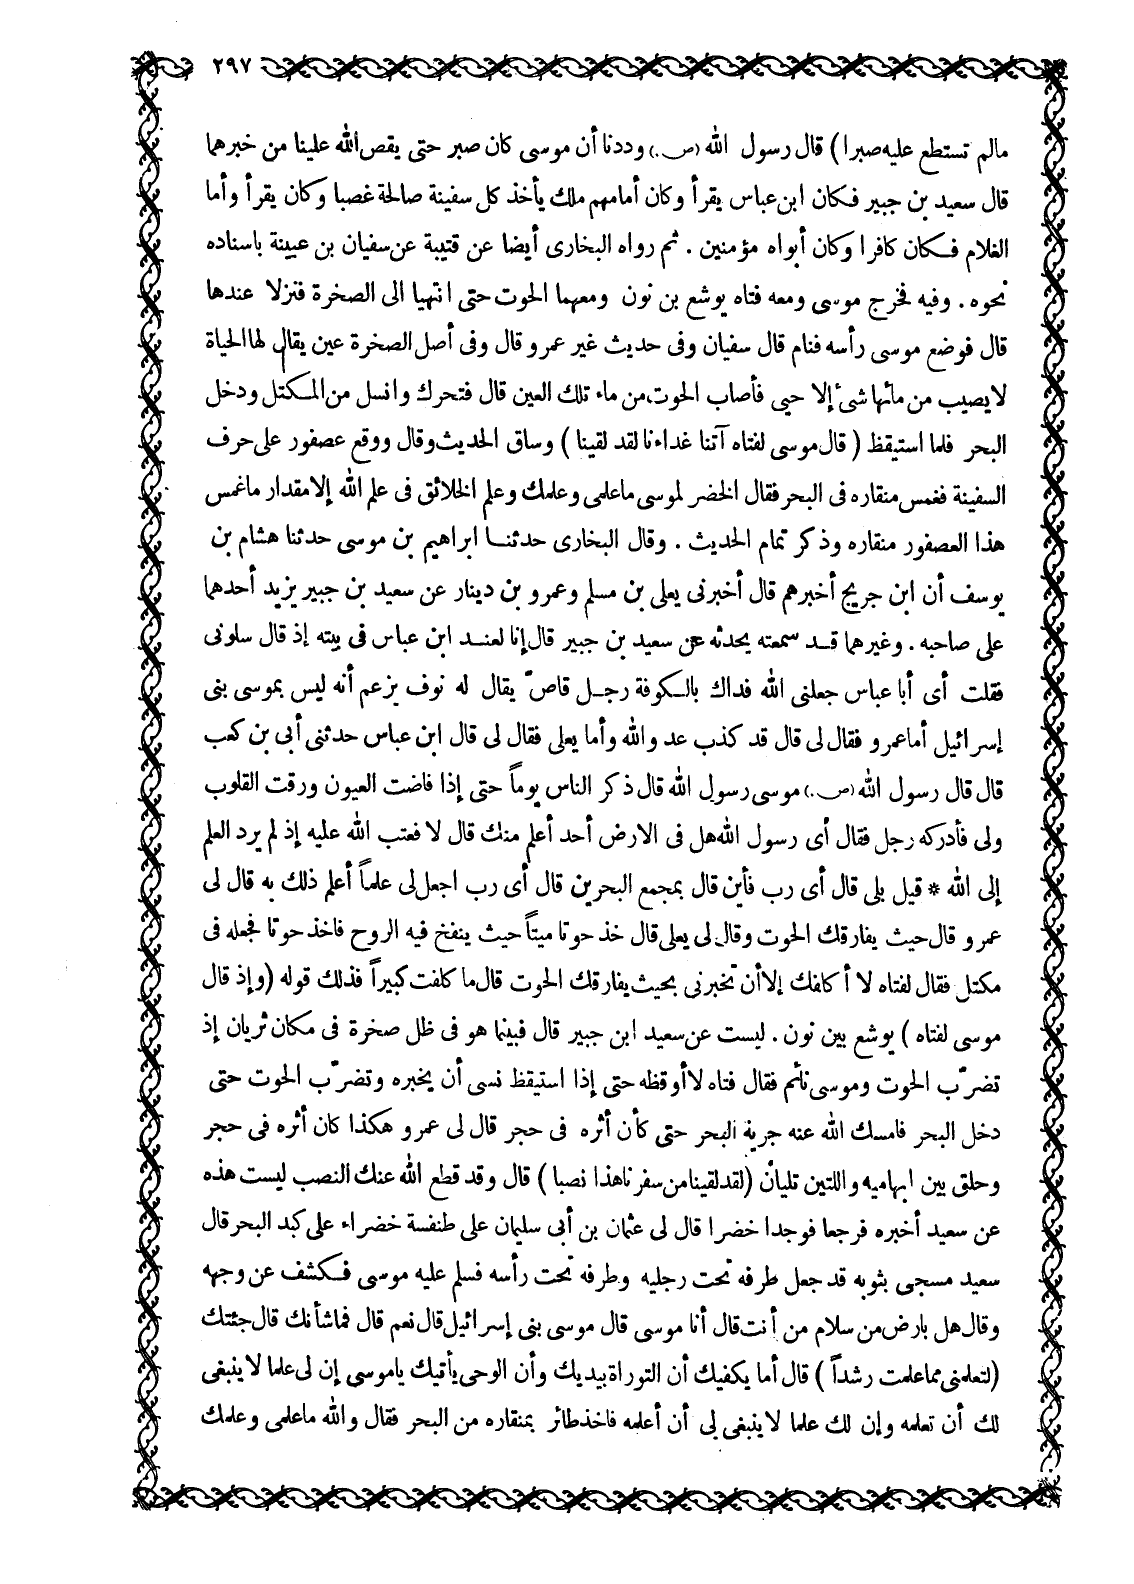 ٢٩٧
مالم تستطع عليه صبرا ) قال رسول الله (ص.) وددنا أن موسى كان صبر حتى يقص الله علينا من خبرهما
قال سعيد بن جبير فكان ابن عباس يقرأ وكان أمامهم ملك يأخذ كل سفينة صالحة غصبا وكان يقرأ وأما
الغلام فكان كافرا وكان أبواه مؤمنين . ثم رواه البخارى أيضا عن قتيبة عن سفيان بن عيينة باسناده
نحوه . وفيه فخرج موسى ومعه فتاه يوشع بن نون ومعهما الحوت حتى انتهيا الى الصخرة فنزلا عندها
قال فوضع موسى رأسه فنام قال سفيان وفى حديث غير عمرو قال وفى أصل الصخرة عين يقال لها الحياة
لا يصيب من مائها شئ إلا حيى فأصاب الحوت من ماء تلك العين قال فتحرك وانسل من المكتل ودخل
البحر فلما استيقظ ( قال موسى لفتاه آتنا غداءنا لقد لقينا ) وساق الحديث وقال ووقع عصفور على حرف
السفينة فغمس منقاره فى البحر فقال الخضر لموسى ما علمى وعلمك وعلم الخلائق فى علم الله إلا مقدار ما غمس
هذا العصفور منقاره وذكر تمام الحديث . وقال البخارى حدثنا ابراهيم بن موسى حدثنا هشام بن
يوسف أن ابن جريج أخبرهم قال أخبرنى يعلى بن مسلم وعمرو بن دينار عن سعيد بن جبير يزيد أحدهما
على صاحبه . وغيرهما قد سمعته يحدثه عن سعيد بن جبير قال إنا لعند ابن عباس فى بيته إذ قال سلونى
فقلت أى أبا عباس جعلنى الله فداك بالكوفة رجل قاصّ يقال له نوف يزعم أنه ليس بموسى بنى
إسرائيل أما عمرو فقال لى قال قد كذب عد والله وأما يعلى فقال لى قال ابن عباس حدثنى أبى بن كعب
قال قال رسول الله (ص.) موسى رسول الله قال ذكر الناس يوماً حتى إذا فاضت العيون ورقت القلوب
ولى فأدركه رجل فقال أى رسول الله هل فى الارض أحد أعلم منك قال لا فعتب الله عليه إذ لم يرد العلم
إلى الله * قيل بلى قال أى رب فأين قال بمجمع البحرين قال أى رب اجعل لى علماً أعلم ذلك به قال لى
عمرو قال حيث يفارقك الحوت وقال لى يعلى قال خذ حوتا ميتاً حيث ينفخ فيه الروح فاخذ حوتا فجعله فى
مكتل فقال لفتاه لا أكافك إلا أن تخبرنى بحيث يفارقك الحوت قال ما كلفت كبيراً فذلك قوله (وإذ قال
موسى لفتاه ) يوشع بين نون . ليست عن سعيد ابن جبير قال فبينما هو فى ظل صخرة فى مكان ثريان إذ
تضرّب الحوت وموسى نائم فقال فتاه لا أوقظه حتى إذا استيقظ نسى أن يخبره وتضرّب الحوت حتى
دخل البحر فامسك الله عنه جرية البحر حتى كأن أثره فى حجر قال لى عمرو هكذا كان أثره فى حجر
وحلق بين ابهاميه واللتين تليان (لقد لقينا من سفرنا هذا نصبا ) قال وقد قطع الله عنك النصب ليست هذه
عن سعيد أخبره فرجعا فوجدا خضرا قال لى عثمان بن أبى سليمان على طنفسة خضراء على كبد البحر قال
سعيد مسجى بثوبه قد جعل طرفه تحت رجليه وطرفه تحت رأسه فسلم عليه موسى فكشف عن وجهه
وقال هل بارض من سلام من أنت قال أنا موسى قال موسى بنى إسرائيل قال نعم قال فما شأنك قال جئتك
(لتعلمنى مما علمت رشداً ) قال أما يكفيك أن التوراة بيديك وأن الوحى يأتيك ياموسى إن لى علما لا ينبغى
لك أن تعلمه وإن لك علما لا ينبغى لى أن أعلمه فاخذ طائر بمنقاره من البحر فقال والله ما علمى وعلمك